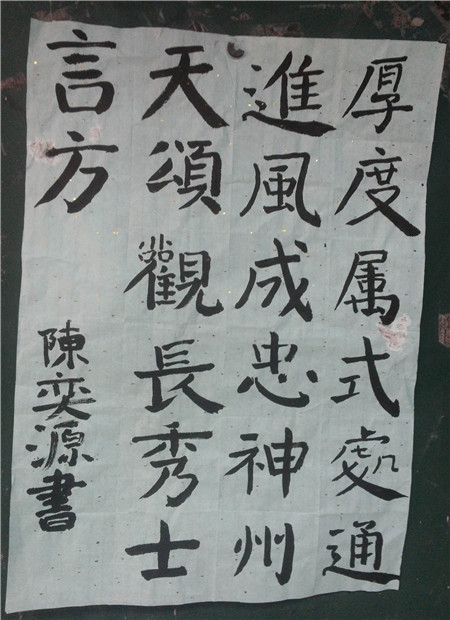 厚度属式處通
進風成忠神州
天頌觀長秀士
言方
陳奕源書